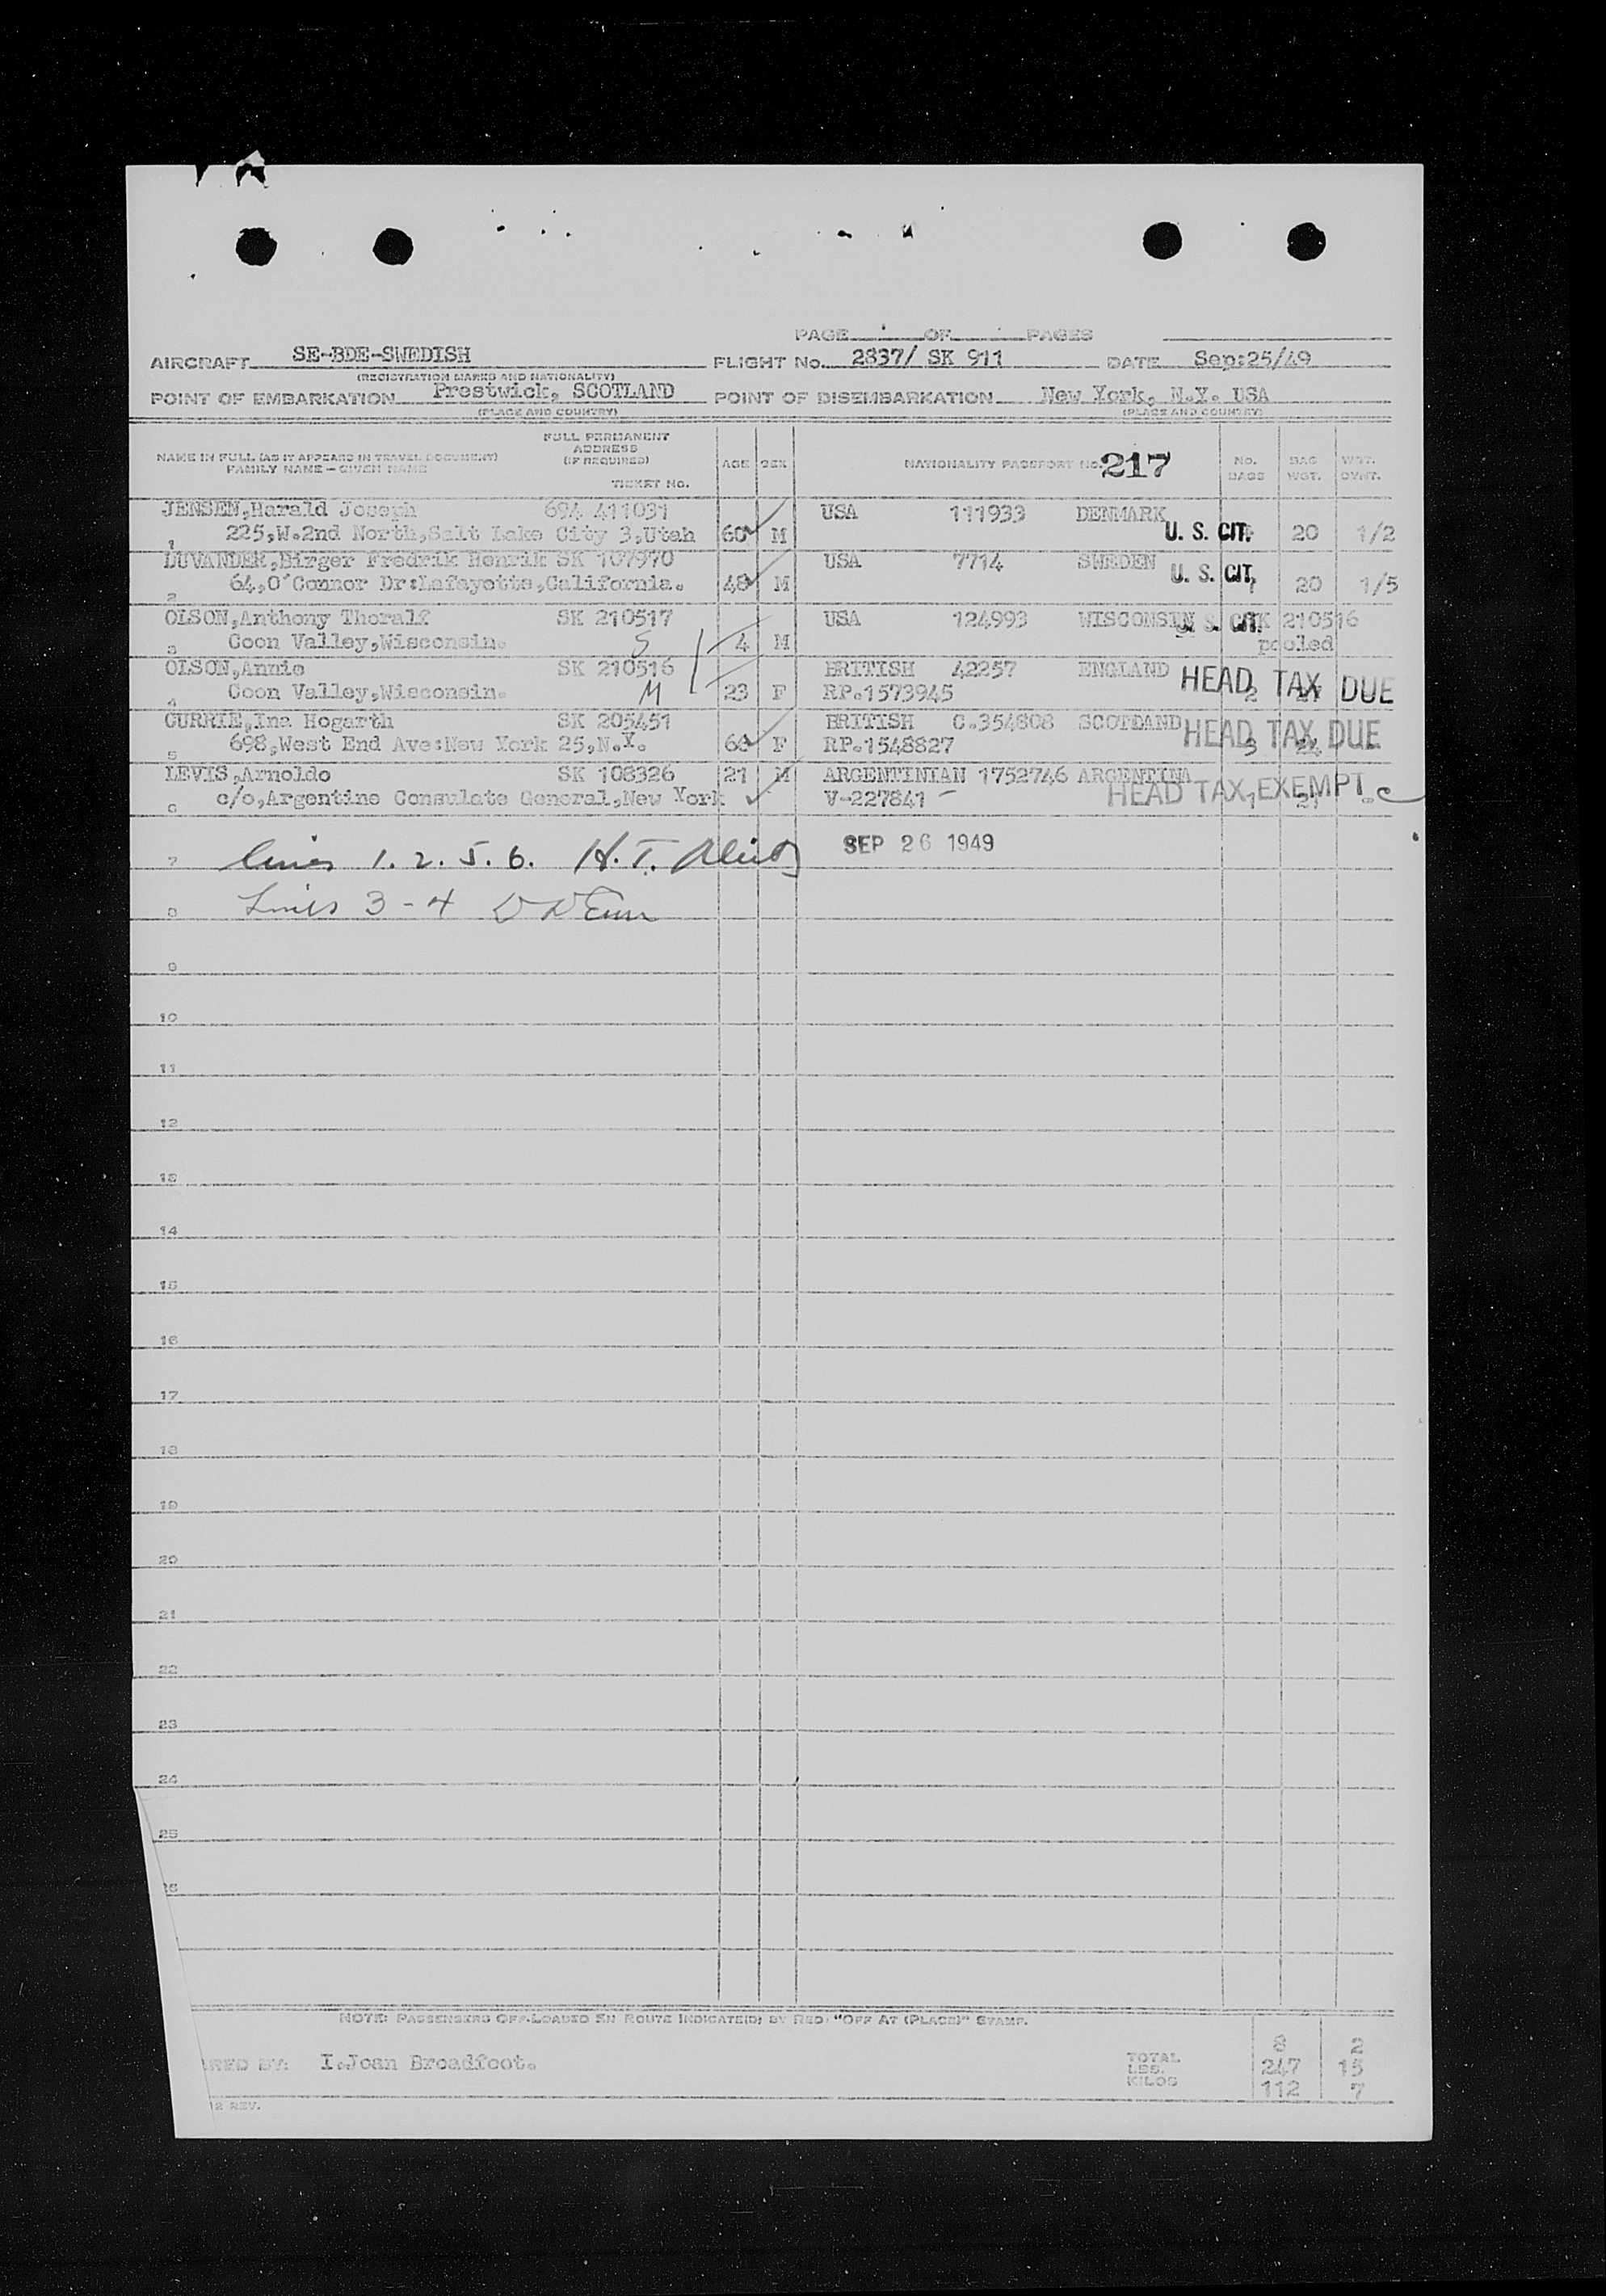 PAGE OF PAGES
AIRCRAFT SE-BDE-SWEDISH FLIGHT No. 2837/ SK 911 DATE Sep:25/49
(REGISTRATION MARKS AND NATIONALITY)
POINT OF EMBARKATION Prestwick, SCOTLAND POINT OF DISEMBARKATION New York, N.Y. USA
(PLACE AND COUNTRY) (PLACE AND COUNTRY)
NAME IN FULL (AS IT APPEARS IN TRAVEL DOCUMENT)
FAMILY NAME - GIVEN NAME
FULL PERMANENT
ADDRESS
(IF REQUIRED)
TICKET No.
AGE SEX NATIONALITY PASSPORT No. 217 No. BAGS BAG WGT. WGT. OVWT.
JENSEN,Harald Joseph 694 411031 USA 111933 DENMARK
1 225,W.2nd North,Salt Lake City 3,Utah 60 M U. S. CIT. 20 1/2
DUVANDER,Birger Fredrik Henrik SK 107970 USA 7714 SWEDEN
2 64,O'Connor Dr:Lafayette,California. 48 M U. S. CIT. 1 20 1/5
OLSON,Anthony Thoralf SK 210517 USA 124993 WISCONSIN U. S. CIT. SK 210516
3 Coon Valley,Wisconsin. S 4 M pooled
OLSON,Annie SK 210516 BRITISH 42257 ENGLAND
4 Coon Valley,Wisconsin. M 23 F RP.1573945 HEAD TAX DUE 2
CURRIE,Ina Hogarth SK 205451 BRITISH C.354808 SCOTLAND
5 698,West End Ave:New York 25,N.Y. 66 F RP.1548827 HEAD TAX DUE 3
LEVIS,Arnoldo SK 108326 21 M ARGENTINIAN 1752746 ARGENTINA
6 c/o,Argentine Consulate General,New York V-227841 HEAD TAX EXEMPT 1 21
7 Lines 1. 2. 5. 6. H. T. SEP 26 1949
8 Lines 3 - 4
9
10
11
12
13
14
15
16
17
18
19
20
21
22
23
24
25
26
NOTE: PASSENGERS OFF-LOADED EN ROUTE INDICATE(D) BY RED "OFF AT (PLACE)" STAMP.
TOTAL 8 2
ARED BY: I.Joan Broadfoot. LBS. 247 15
KILOS 112 7
2 REV.